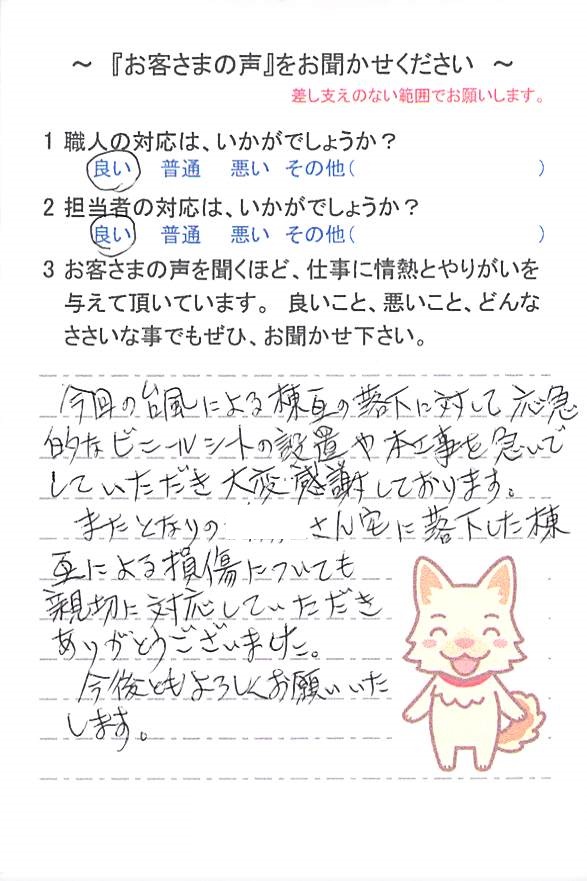 ~ 『お客さまの声』をお聞かせください ~
差し支えのない範囲でお願いします。
1 職人の対応は、いかがでしょうか？
良い 普通 悪い その他( )
2 担当者の対応は、いかがでしょうか？
良い 普通 悪い その他( )
3 お客さまの声を聞くほど、仕事に情熱とやりがいを
与えて頂いています。 良いこと、悪いこと、どんな
ささいな事でもぜひ、お聞かせ下さい。
今回の台風による棟瓦の落下に対して応急
的なビニールシートの設置や本工事を急いで
していただき大変感謝しております。
またとなりの さん宅に落下した棟
瓦による損傷についても
親切に対応していただき
ありがとうございました。
今後ともよろしくお願いいた
します。